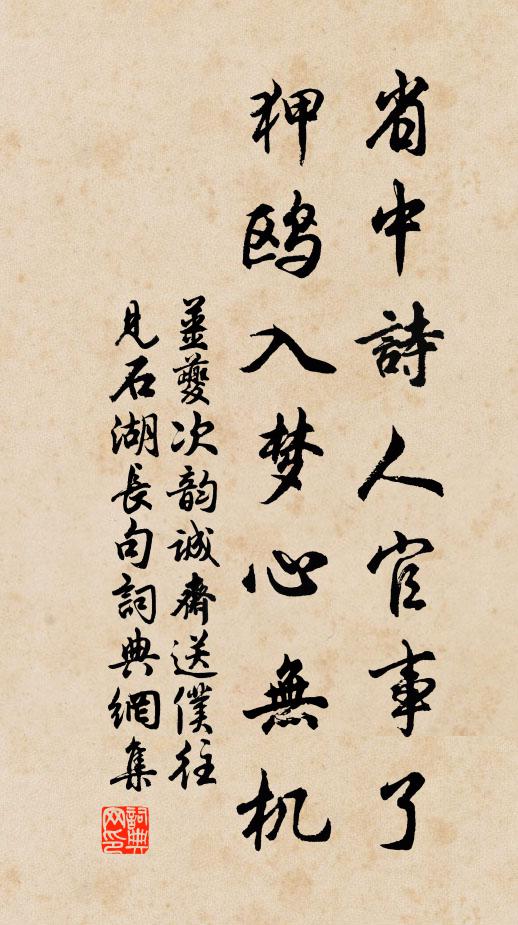 省中詩人官事了
狎鸥入梦心無机
姜夔次韵誠齋送僕往
見石湖長句詞典網集
詞典
网印